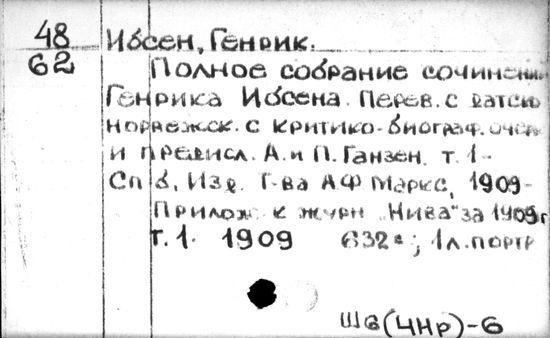 48
62
Ибсен, Генрик.
Полное собрание сочинени
Генрика Ибсена. Перев. с датско
норвежск. с критико-биограф. очер
и предисл. А. и П. Ганзен. т. 1-
Спб, Изд. Т-ва А.Ф Маркс, 1909-
Прилож. к журн „Нива" за 1909 г
Т. 1. 1909 632 с; 1 л. портр
Ш6(4Нр)-6